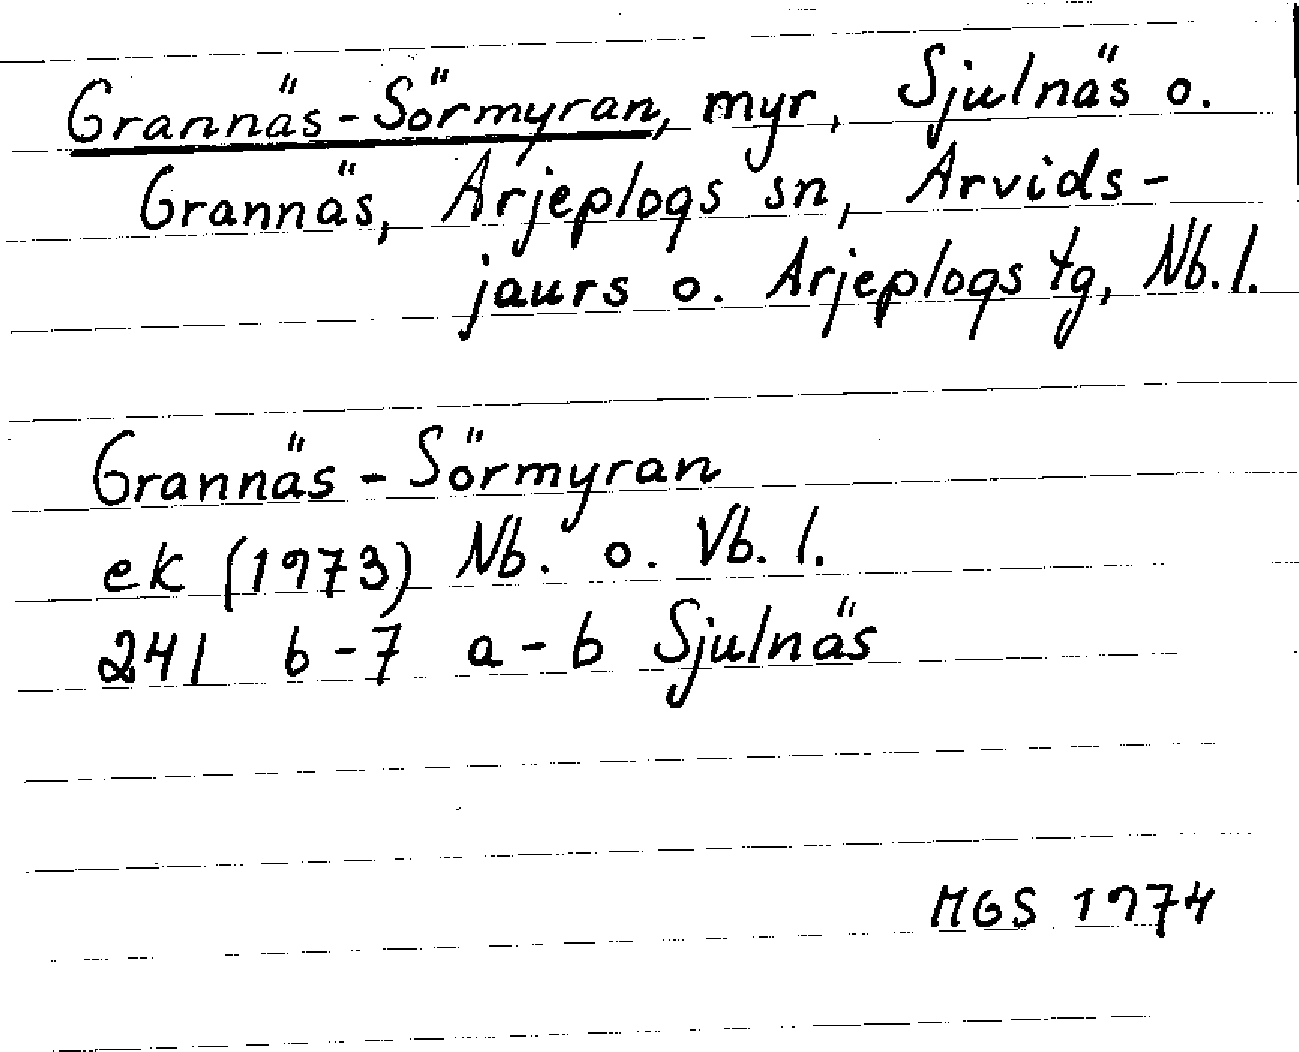 Grannäs-Sörmyran, myr, Sjulnäs o.
Grannäs, Arjeplogs sn, Arvids-
jaurs o. Arjeplogs tg, Nb.l.
Grannäs-Sörmyran
ek (1973) Nb. o. Vb. l.
241 b-7 a-b Sjulnäs
MGS 1974